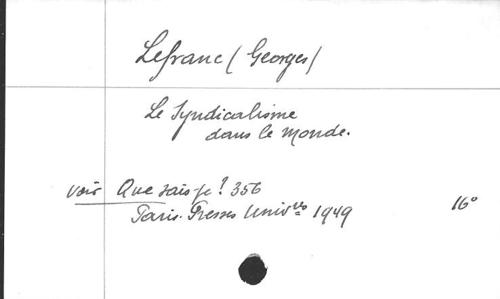 Lefranc (Georges)
Le Syndicalisme
dans le monde.
voir Que sais-je? 356
Paris. Presses Univres 1949 16°